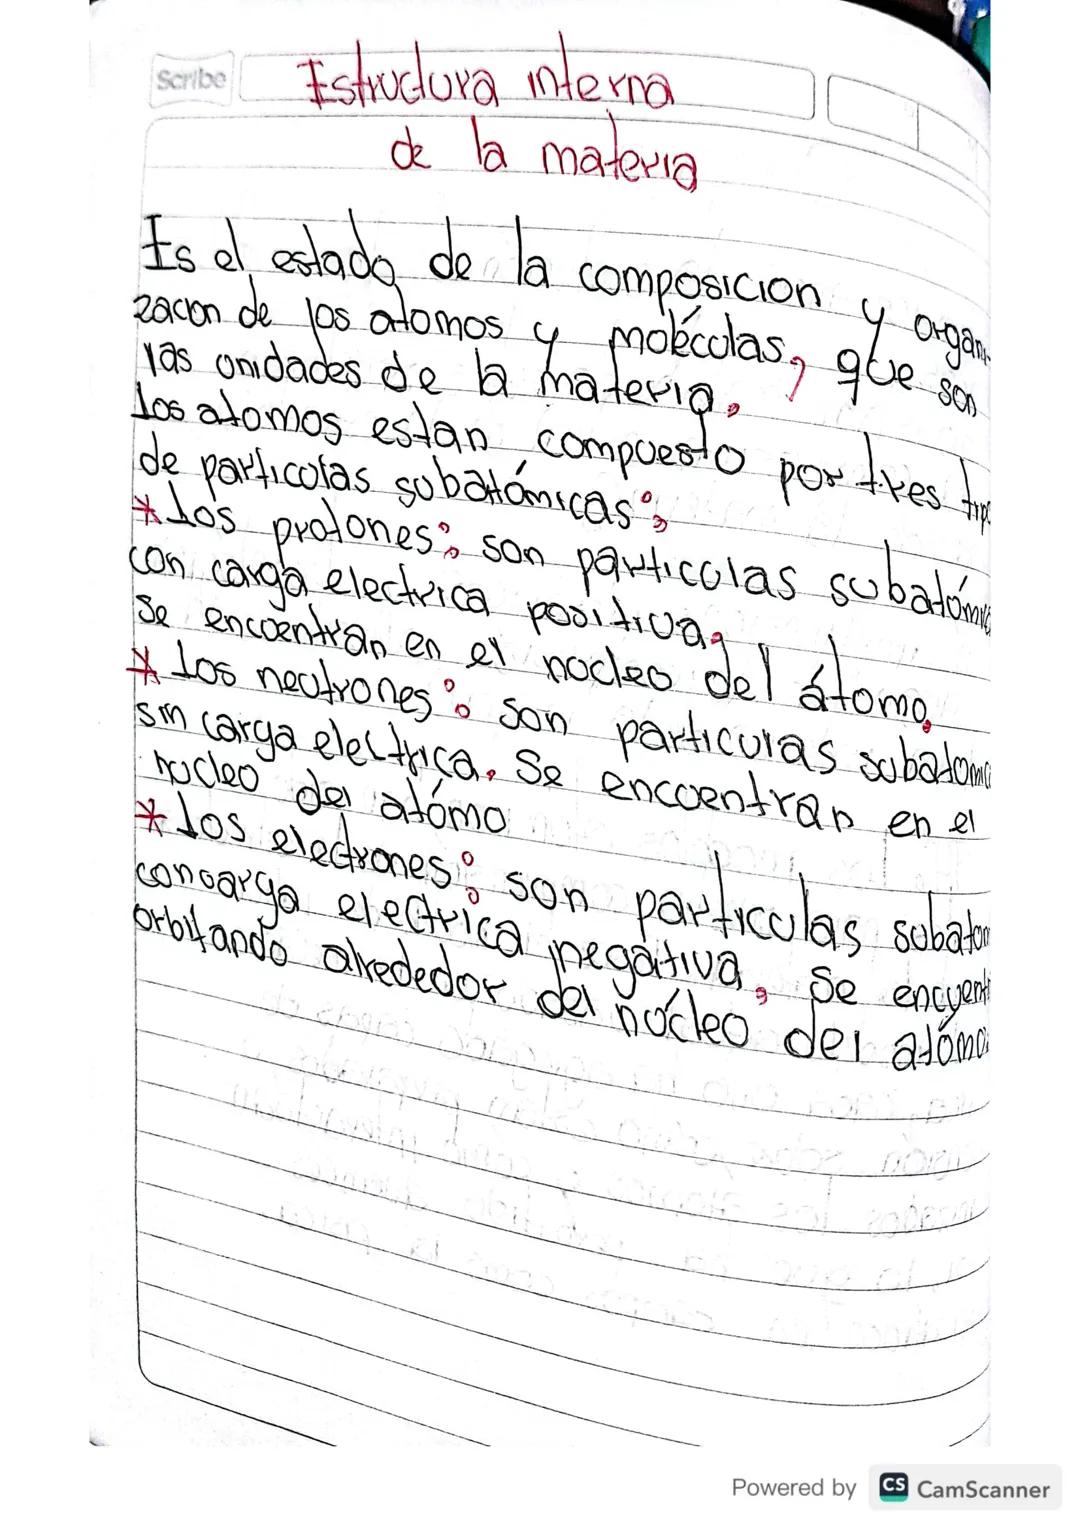 Scribe
Estructura interna
de la materia
Es el estado de la composicion y organi-
zacion de los atomos y molécolas, que son
las unidades de la materia.
Los atomos estan compuesto por tres tip
de particolas subatómicas:
* Los protones: son particolas subatómic
con carga electrica positiva.
Se encoentran en el nocleo del átomo.
* Los neutrones: son particulas subatomic
sin carga electrica. Se encoentran en el
nucleo del atómo
* Los electrones: son particulas subatom
concarga electrica negativa. Se encuent
orbitando alrededor del núcleo del atómo.
Powered by CS CamScanner